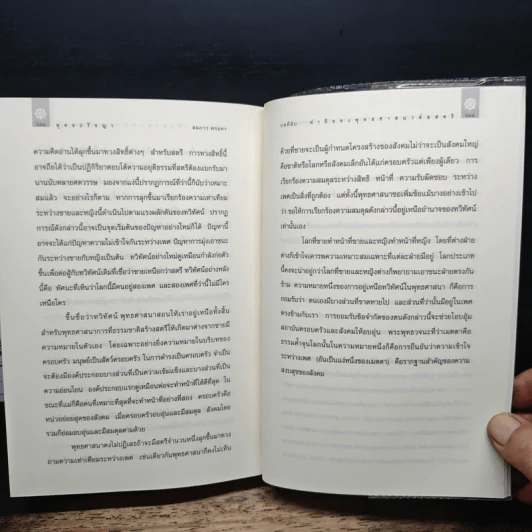 พุทธปรัชญา
สมภาร พรมทา
ความคิดอ่านได้ลุกขึ้นมาทวงสิทธิ์ต่างๆ สำหรับสตรี การทวงสิทธิ์นี้
อาจถือได้ว่าเป็นปฏิกิริยาตอบโต้ความอยุติธรรมที่สตรีต้องแบกรับมา
นานนับหลายศตวรรษ มองจากแง่นี้ปรากฏการณ์ที่ว่านี้ก็นับว่าเหมาะ
สมแล้ว จะอย่างไรก็ตาม หากการลุกขึ้นมาเรียกร้องความเท่าเทียม
ระหว่างชายและหญิงนี้ดำเนินไปตามแรงผลักดันของทวิทัศน์ ปรากฏ
การณ์ดังกล่าวนี้อาจเป็นจุดเริ่มต้นของปัญหาอย่างใหม่ก็ได้ ปัญหานี้
อาจจะได้แก่ปัญหาความไม่เข้าใจกันระหว่างเพศ ปัญหาการมุ่งเอาชนะ
กันระหว่างชายกับหญิงเป็นต้น ทวิทัศน์อย่างใหม่ดูเหมือนกำลังก่อตัว
ขึ้นเพื่อต่อสู้กับทวิทัศน์เดิมที่เชื่อว่าชายเหนือกว่าสตรี ทวิทัศน์อย่างหลัง
นี้คือ ทัศนะที่เห็นว่าโลกนี้มีคนอยู่สองเพศ และสองเพศที่ว่านี้ไม่มีใคร
เหนือใคร
ขึ้นชื่อว่าทวิทัศน์ พุทธศาสนาสอนให้เราอยู่เหนือทั้งสิ้น
สำหรับพุทธศาสนาการที่ธรรมชาติสร้างสตรีให้เกิดมาต่างจากชายมี
ความหมายในตัวเอง โดยเฉพาะอย่างยิ่งความหมายในบริบทของ
ครอบครัว มนุษย์เป็นสัตว์ครอบครัว ในการดำรงเป็นครอบครัว จำเป็น
จะต้องมีองค์ประกอบบางส่วนที่เป็นความเข้มแข็งและบางส่วนที่เป็น
ความอ่อนโยน องค์ประกอบแรกดูเหมือนพ่อจะทำหน้าที่ได้ดีที่สุด ใน
ขณะที่แม่ก็คือคนที่เหมาะที่สุดที่จะทำหน้าที่อย่างที่สอง ครอบครัวคือ
หน่วยย่อยสุดของสังคม เมื่อครอบครัวอบอุ่นและมีสมดุล สังคมโดย
รวมก็ย่อมอบอุ่นและมีสมดุลตามด้วย
พุทธศาสนาคงไม่ปฏิเสธถ้าจะมีสตรีจำนวนหนึ่งลุกขึ้นมาทวง
ถามความเท่าเทียมระหว่างเพศ เช่นเดียวกันพุทธศาสนาก็คงไม่เห็น
ท่าทีของพุทธศาสนาต่อสตรี
ด้วยที่ชายจะเป็นผู้กำหนดโครงสร้างของสังคมไม่ว่าจะเป็นสังคมใหญ่
คือชาติหรือโลกหรือสังคมเล็กอันได้แก่ครอบครัวแต่เพียงผู้เดียว การ
เรียกร้องความสมดุลระหว่างสิทธิ หน้าที่ ความรับผิดชอบ ระหว่าง
เพศเป็นสิ่งที่ถูกต้อง แต่ทั้งนี้พุทธศาสนาขอเพิ่มข้อแม้บางอย่างเข้าไป
ว่า ขอให้การเรียกร้องความสมดุลดังกล่าวนี้อยู่เหนืออำนาจของทวิทัศน์
เท่านั้นเอง
โลกที่ชายทำหน้าที่ชายและหญิงทำหน้าที่หญิง โดยที่ต่างฝ่าย
ต่างก็เข้าใจเคารพความเหมาะสมเฉพาะที่แต่ละฝ่ายมีอยู่ โลกประเภท
นี้คงจะน่าอยู่กว่าโลกที่ชายและหญิงต่างก็พยายามเอาชนะฝ่ายตรงกัน
ข้าม ความหมายหนึ่งของการอยู่เหนือทวิทัศน์ในพุทธศาสนา ก็คือการ
ยอมรับว่า ตนเองมีบางส่วนที่ขาดหายไป และส่วนที่ว่านั้นมีอยู่ในเพศ
ตรงข้ามกับเรา การยอมรับข้อจำกัดของตนดังกล่าวนี้จะช่วยโอบอุ้ม
สถาบันครอบครัวและสังคมให้อบอุ่น พระพุทธวจนะที่ว่าเมตตาคือ
ธรรมค้ำจุนโลกนั้นในความหมายหนึ่งก็คือการยืนยันว่าความเข้าใจ
ระหว่างเพศ (อันเป็นแง่หนึ่งของเมตตา) คือรากฐานสำคัญของความ
สงบสุขของสังคม